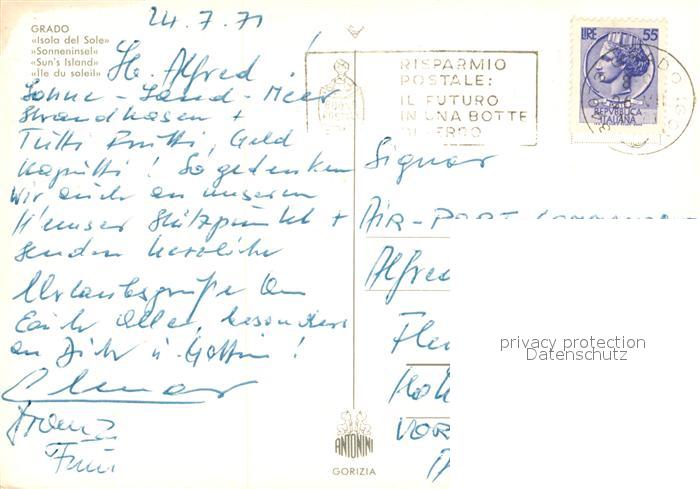 24.7.71
GRADO
«Isola del Sole»
«Sonneninsel»
«Sun's Island»
«Ile du soleil»
Lb. Alfred!
Sonne - Sand - Meer
Strandhasen +
Tutti Frutti, Geld
kaputti! So gedenken
wir auch an unseren
Stützpunkt +
senden herzliche
Urlaubsgrüße an
Euch alle, besonders
an Dich u. Gattin!
Franz
RISPARMIO
POSTALE:
IL FUTURO
IN UNA BOTTE
DI FERRO
LIRE 55
REPVBBLICA
ITALIANA
Signor
AIR-PORT
Alfred
privacy protection
Datenschutz
ANTONINI
GORIZIA